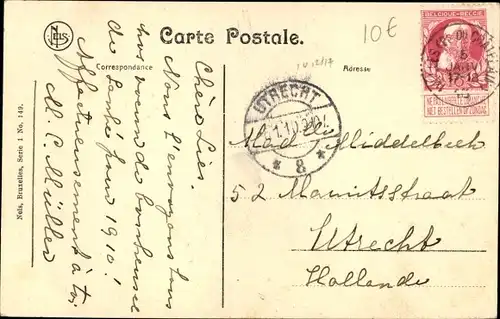 Carte Postale.
Correspondance
Adresse
10€
BELGIQUE-BELGIË
NE PAS LIVRER LE DIMANCHE
NIET BESTELLEN OP ZONDAG
UTRECHT
8
Chère Lies.
Nous t'envoyons tous
nos voeux de bonheur
de Santé pour 1910!
Affectueusement à toi
M. C. Müller
Mad Middelbeek
52 Mauritsstraat
Utrecht
Hollande
Nels, Bruxelles, Serie 1 No. 149.